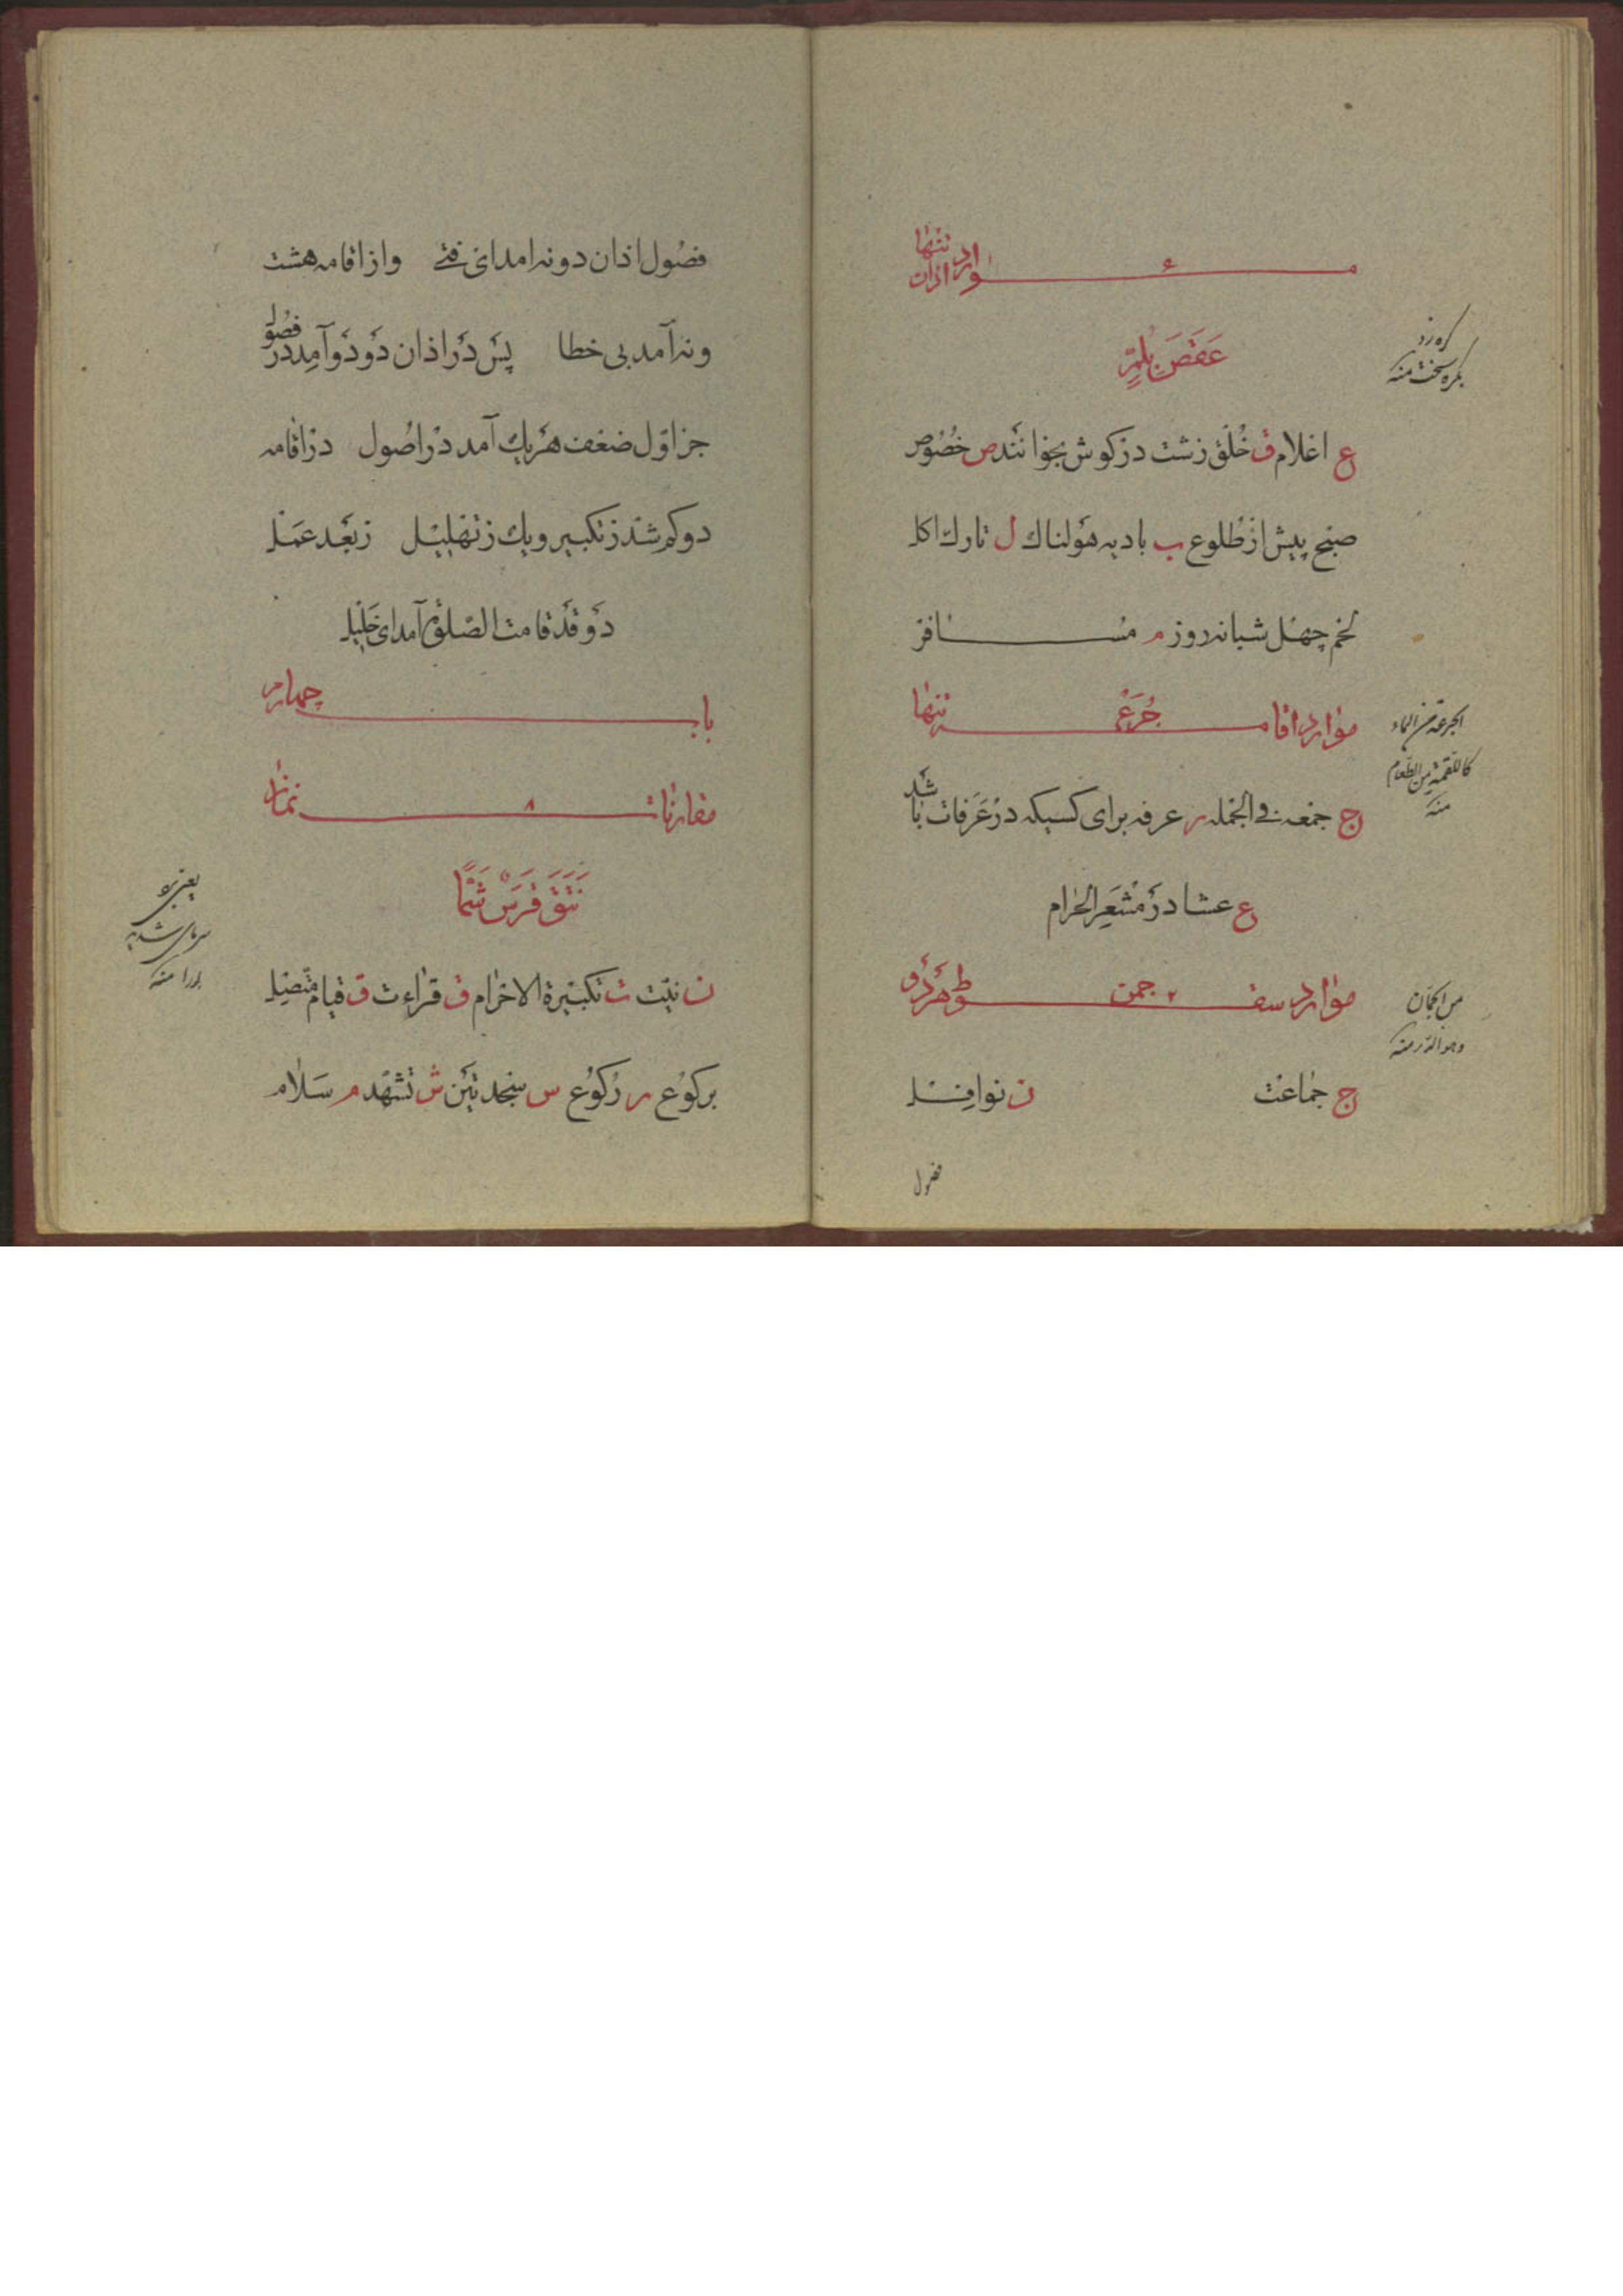 موارد تنها اذان
عَقَصَ بِلُمٍّ
ع اعلام ق خُلق زشت در گوش بخوانند ص خُصُوص
صبح پیش از طُلوع ب بادیه هَولناك ل تارك اکل
لحم چهل شبانه روز م مسافر
موارد اقامه جُرَعْ تنها
ج جمعه فی الجمله ر عرفه برای کسیکه در عَرَفات باشد
ع عشا در مَشْعَر الحرام
موارد سقوط ۲ جمن هر دو
ج جماعت ن نوافل
فصول
گره زد
بگره سخت منه
الجرعة من الماء
کاللقمة من الطعام
منه
من الجمان
وهو الدر منه
فصُول اذان دو نه امد ای فتی واز اقامه هشت
ونه آمد بی خطا پس دَر اذان دَو دَو آمد در فصُول
جز اوّل ضعف هَر یك آمد در اصُول در اقامه
دو کم شد ز تکبیر ویك ز تهلیل ز بَعد عَمَل
دَو قَد قامت الصّلوة آمد ای خَلیل
باب چهارم
مقارنات ۸ نماز
نَتَقَ قَرَسَ شَمًّا
ن نیّت ت تکبیرة الاحرام ق قراءت ق قیام متّصل
برکوُع ر رُکوُع س سجدتین ش تشهّد م سَلام
یعنی
سرمای شدید
منه